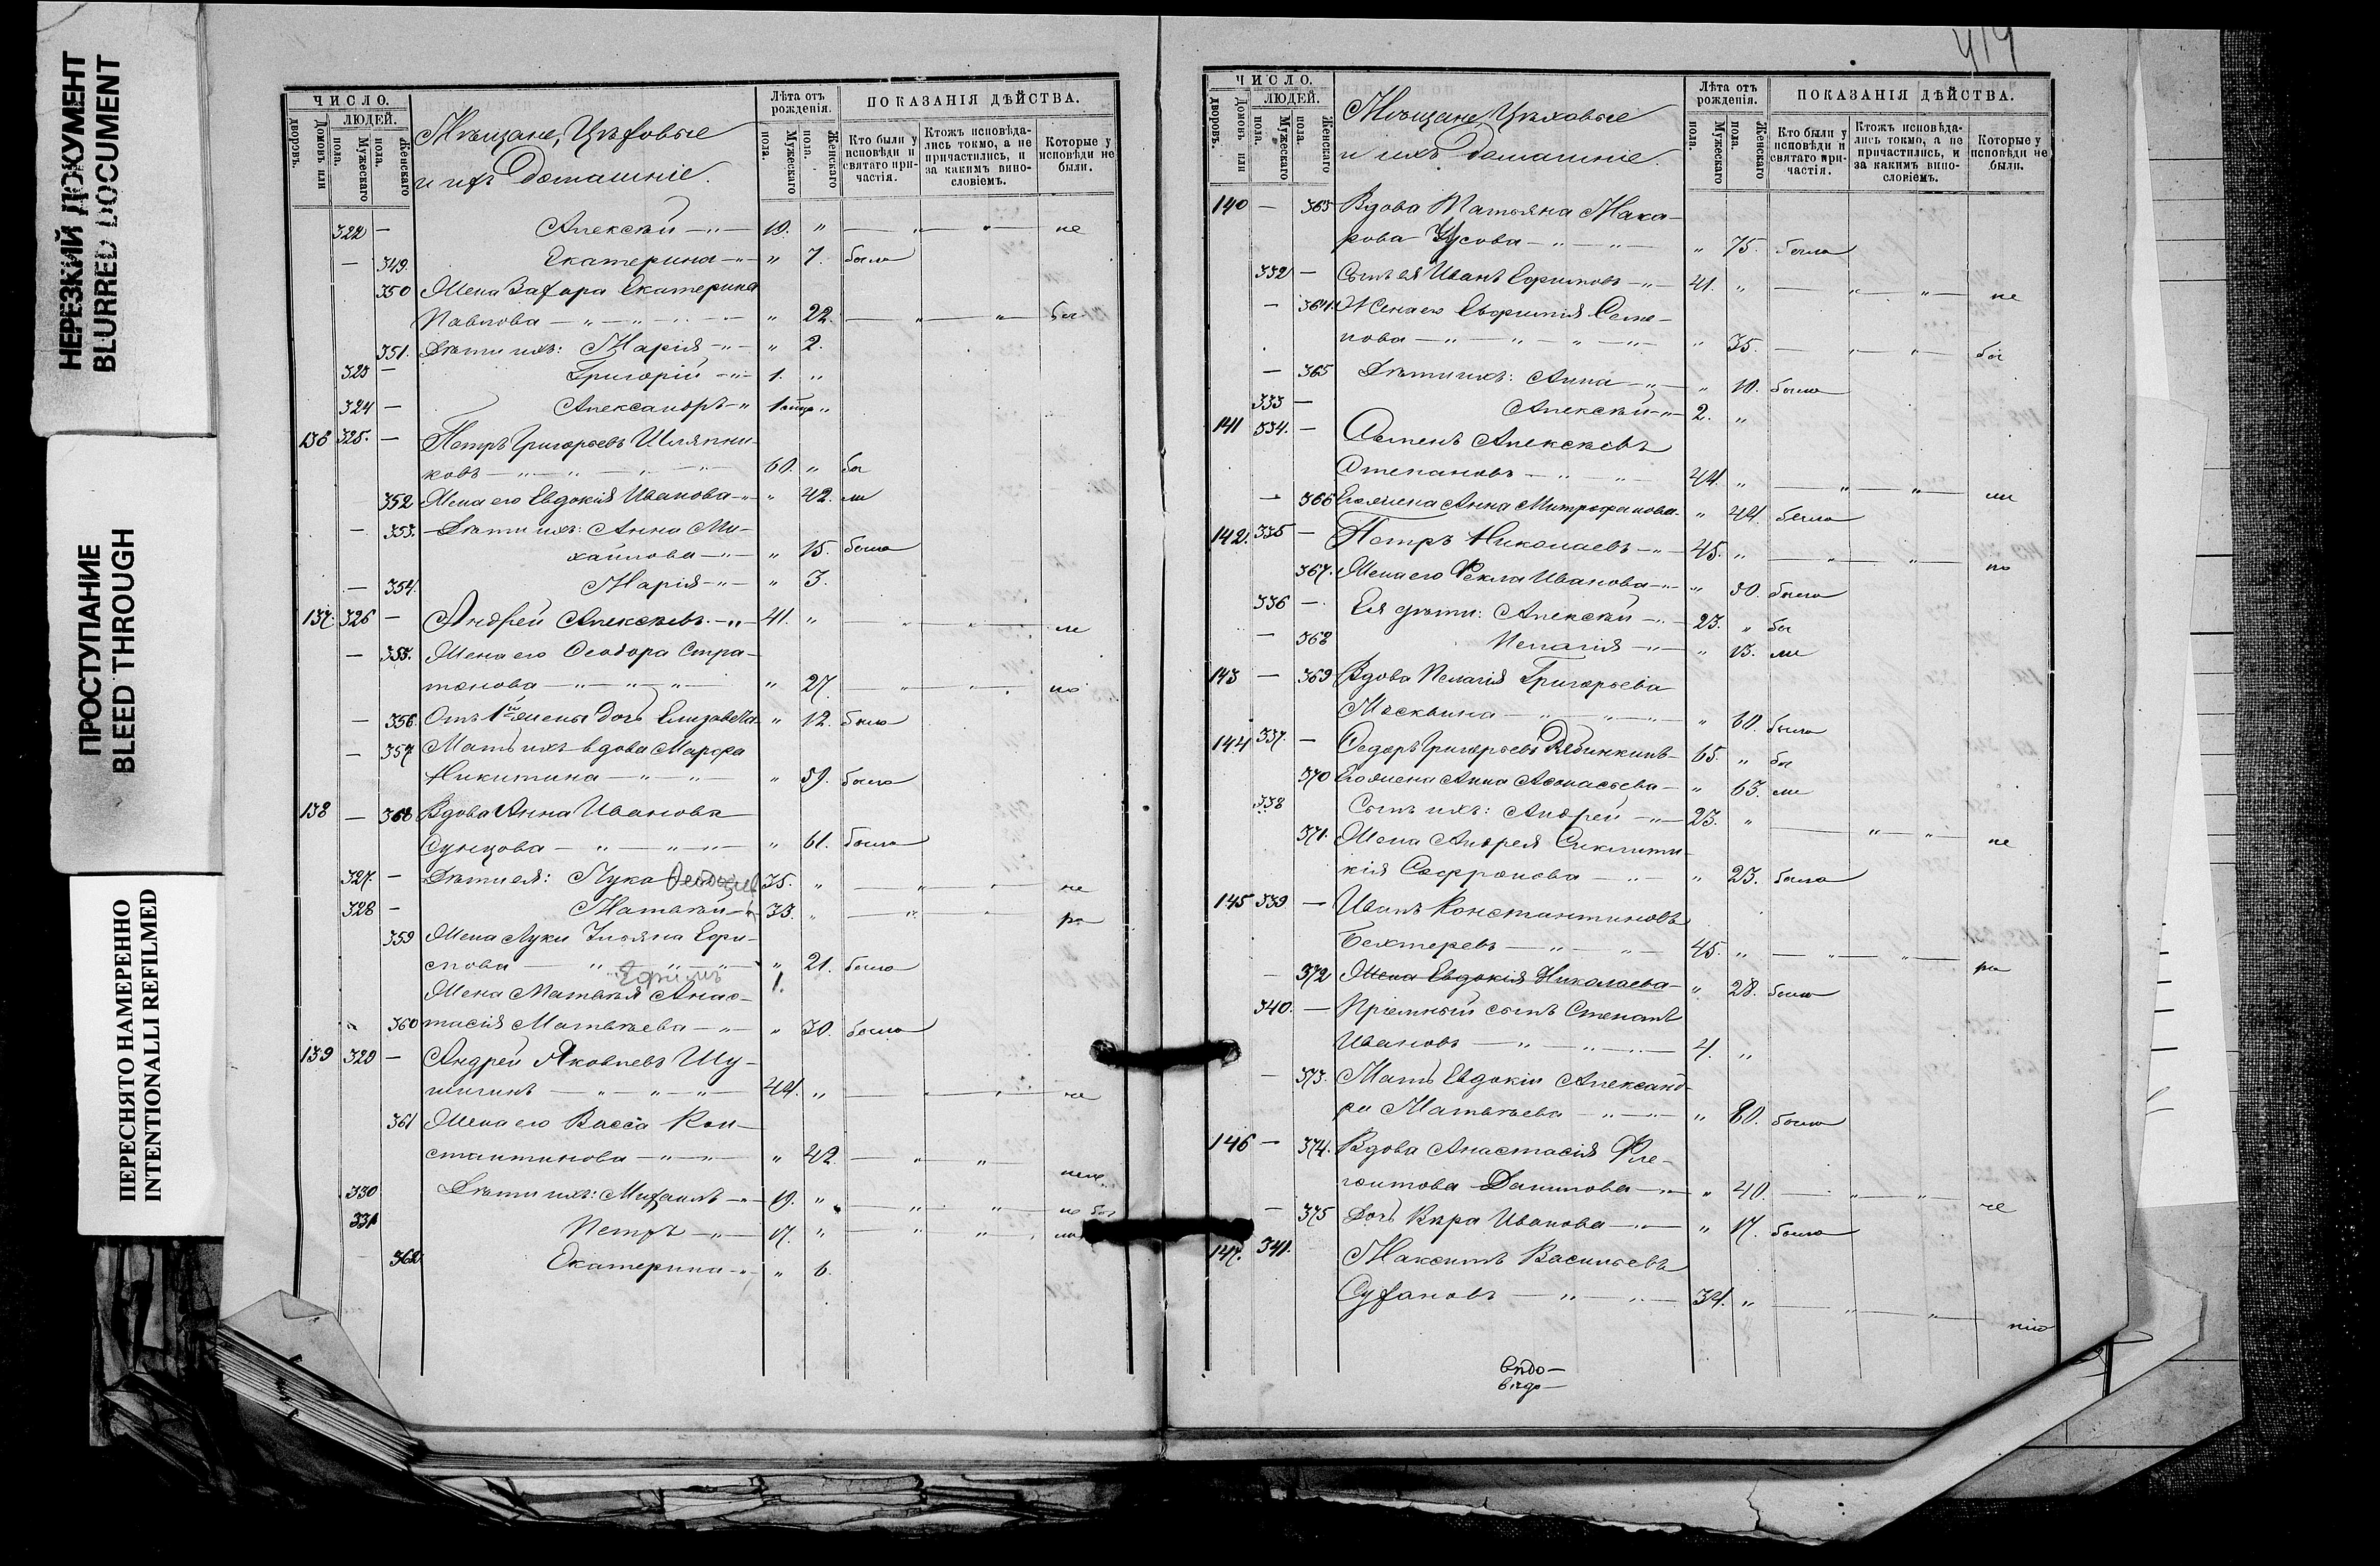 НЕРЕЗКИЙ ДОКУМЕНТ
BLURRED DOCUMENT
ПРОСТУПАНИЕ
BLEED THROUGH
ПЕРЕСНЯТО НАМЕРЕННО
INTENTIONALLI REFILMED
ЧИСЛО.
ЛЮДЕЙ.
Домовъ или дворовъ.
Мужескаго пола.
Женскаго пола.
Мѣщане, Цѣховые
и ихъ Домашніе.
Лѣта отъ рожденія.
Мужескаго пола.
Женскаго пола.
ПОКАЗАНІЯ ДѢЙСТВА.
Кто были у исповѣди и святаго причастія.
Ктожъ исповѣдались токмо, а не причастились, и за какимъ винословіемъ.
Которые у исповѣди не были.
322 — Алексѣй — 19. " — " — " — не
— 349. Екатерина — " 7. была
350 Жена Захара Екатерина
Павлова — " — " — " 22. — " — "
351. Дѣти ихъ: Марія — " 2.
323 — Григорій — 1. "
324 — Александръ — "
136 325. — Петръ Григорьевъ Шляпни-
ковъ — " — 60. "
352 Жена его Евдокія Иванова — " 42.
— 353. Дѣти ихъ: Анна Ми-
хайлова — " 15. была
— 354. Марія — " 3.
137. 326 — Андрей Алексѣевъ — 41. " — не
— 355. Жена его Ѳеодора Стра-
тонова — " 27.
— 356. Отъ 1й жены дочь Елизавета " 12. была
— 357 Мать ихъ вдова Марѳа
Никитина — " 59. была
138 — 358 Вдова Анна Иванова
Сунцова — " 61. была
327. — Дѣти ея: Лука 35. " — не
328 — Матвѣй — 33. "
359 Жена Луки Ульяна Ефи-
мова — " 21. была
Ефимъ 1.
Жена Матвѣя Анас-
360 тасія Матвѣева — " 30. была
139 329 — Андрей Яковлевъ Шу-
шигинъ — 44. " — не
361 Жена его Васса Кон-
стантинова — " 42.
330 Дѣти ихъ: Михаилъ — 19. "
331 Петръ — 17. "
362 Екатерина — " 6.
414
ЧИСЛО.
ЛЮДЕЙ.
Домовъ или дворовъ.
Мужескаго пола.
Женскаго пола.
Мѣщане Цѣховые
и ихъ Домашніе.
Лѣта отъ рожденія.
Мужескаго пола.
Женскаго пола.
ПОКАЗАНІЯ ДѢЙСТВА.
Кто были у исповѣди и святаго причастія.
Ктожъ исповѣдались токмо, а не причастились, и за какимъ винословіемъ.
Которые у исповѣди не были.
140 — 363 Вдова Татьяна Мака-
рова Усова — " 75. была
332 — Сынъ ея Иванъ Ефимовъ — 41. " — не
— 364. Жена его Евфимія Семе-
нова — " 35.
— 365 Дѣти ихъ: Анна — " 10. была
333 — Алексѣй — 2. "
141 334. — Семенъ Алексѣевъ
Степановъ — 44. "
— 366 Его жена Анна Митрофанова " 44. была
142 335 — Петръ Николаевъ — 45. "
367. Жена его Ѳекла Иванова — " 50. была
336 — Ея дѣти: Алексѣй — 23. "
— 368 Пелагія — " 13.
143 — 369 Вдова Пелагія Григорьева
Москвина — " 60. была
144 337. — Ѳедоръ Григорьевъ Рябинкинъ 65. "
370 Его жена Анна Аѳанасьева — " 63.
338 Сынъ ихъ: Андрей — 23. " — не
371. Жена Андрея Синклити-
кія Сафронова — " 23. была
145 339 — Иванъ Константиновъ
Бехтеревъ — 45. "
— 372 Жена Евдокія Николаева — " 28. была
340. — Пріемный сынъ Степанъ
Ивановъ — 4. "
— 373. Мать Евдокіи Александ-
ра Матвѣева — " 80. была
146 — 374. Вдова Анастасія Фле-
гонтова Данилова — " 40. — не
— 375 Дочь Вѣра Иванова — " 17. была
147. 341. Максимъ Васильевъ
Сухановъ — 34. "